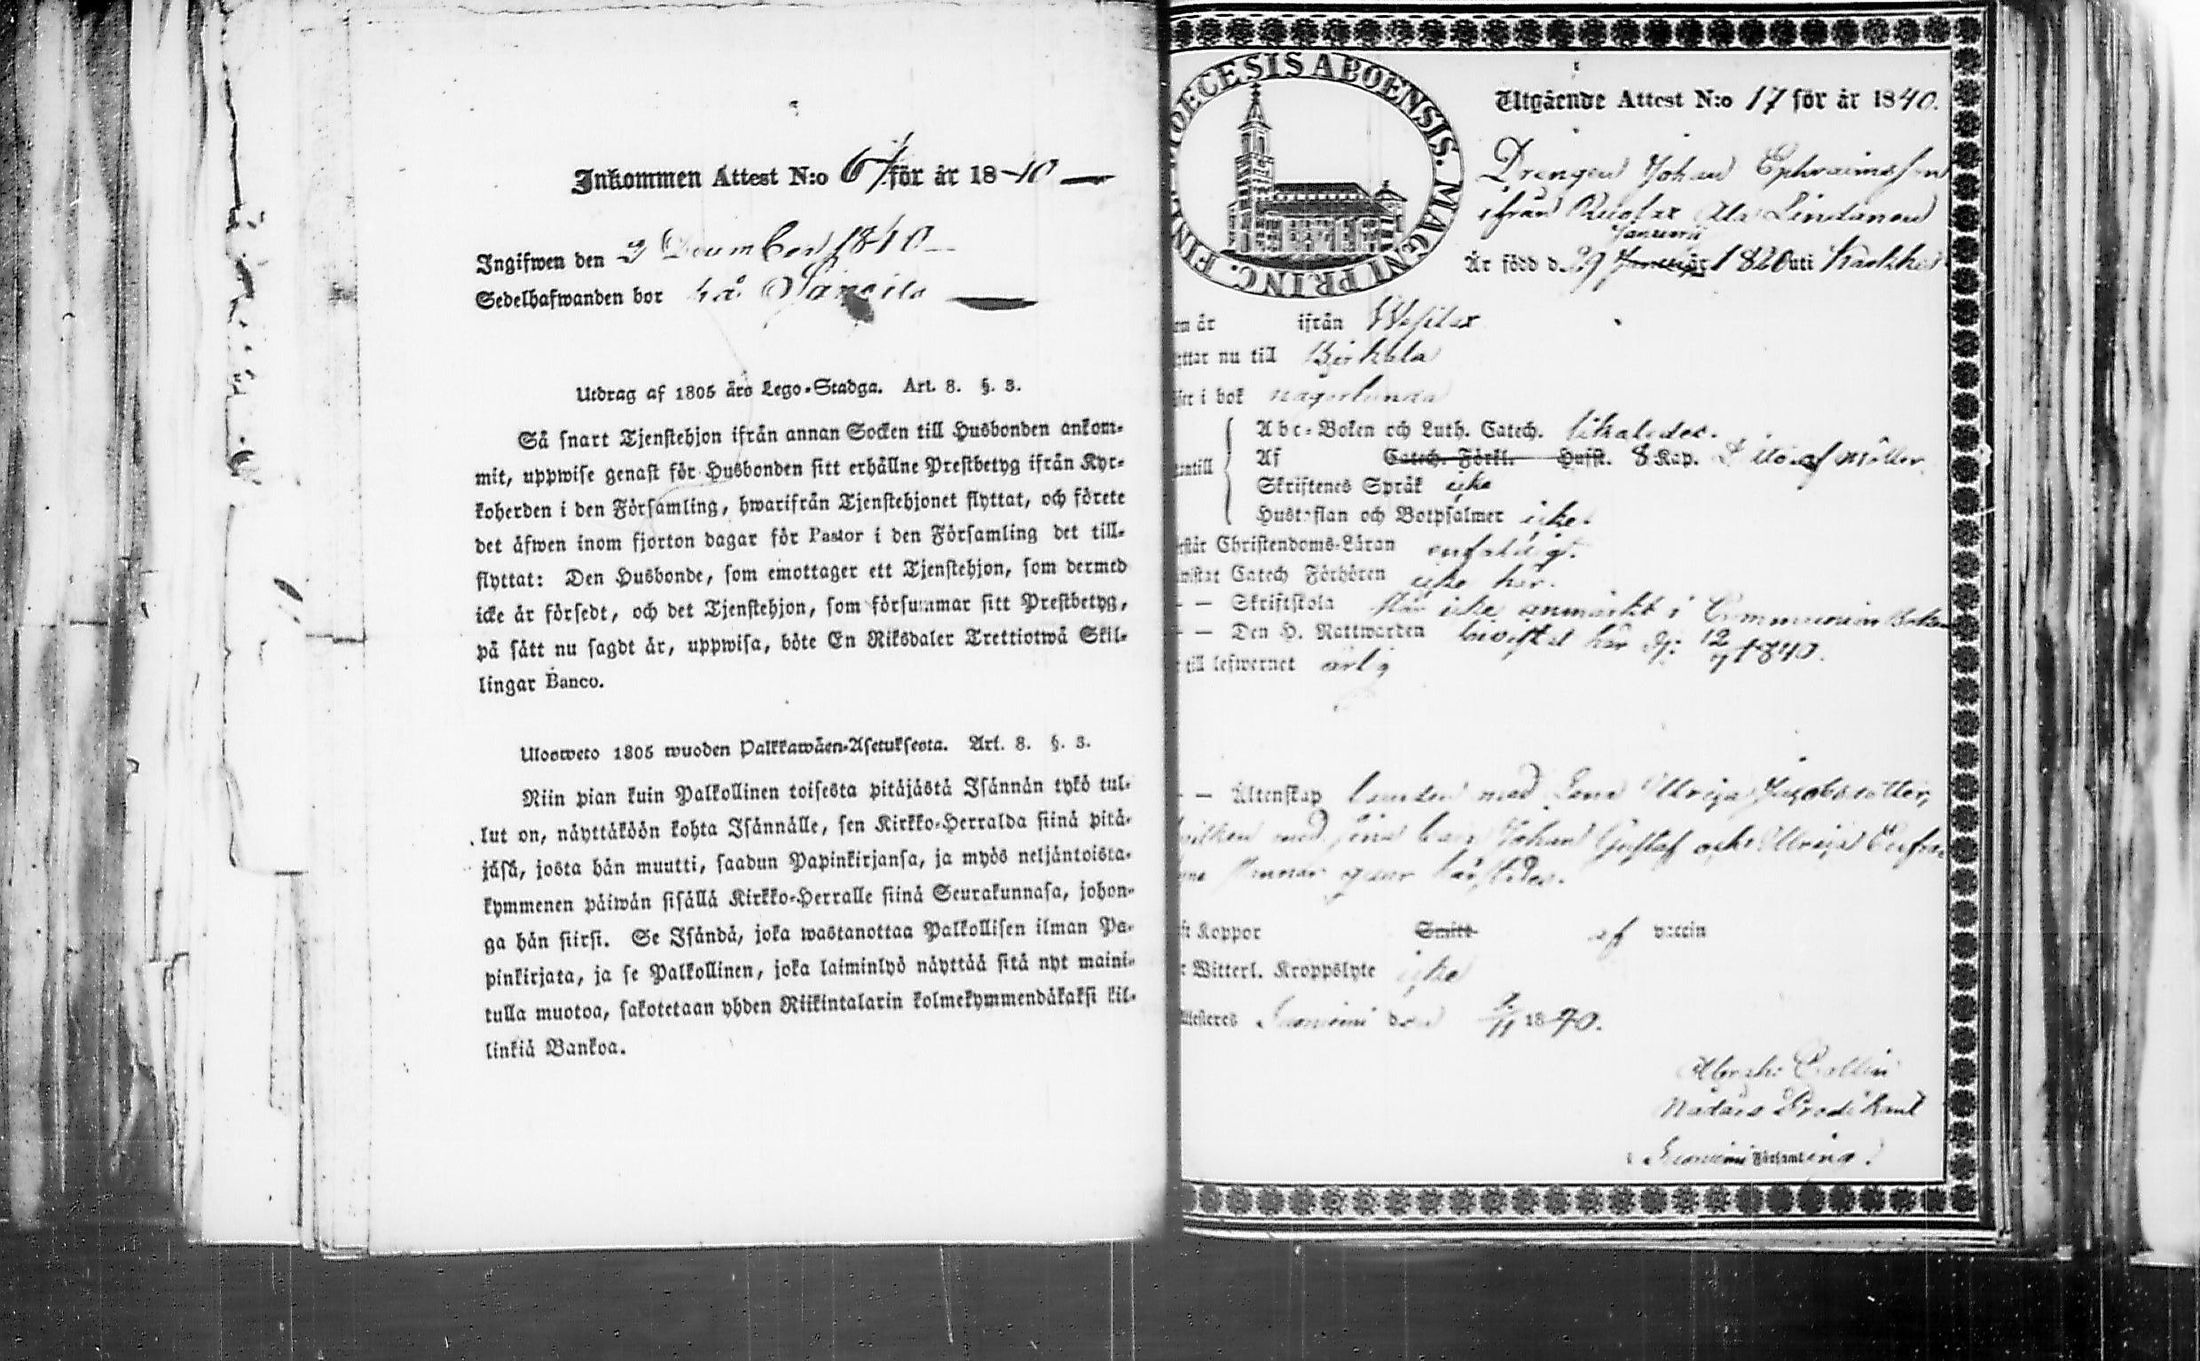 Inkommen Attest N:o för år 18-40
Ingifwen den 3 December 1840
Sedelhafwanden bor
Utdrag af 1805 års Lego-Stadga. Art. 8. §. 3.
Så snart Tjenstehjon ifrån annan Socken till Husbonden ankom-
mit, uppwise genast för Husbonden sitt erhållne Prestbetyg ifrån Kyr-
koherden i den Församling, hwarifrån Tjenstehjonet flyttat, och förete
det äfwen inom fjorton dagar för Pastor i den Församling det till-
flyttat: Den Husbonde, som emottager ett Tjenstehjon, som dermed
icke är försedt, och det Tjenstehjon, som försummar sitt Prestbetyg,
på sätt nu sagdt är, uppwisa, böte En Riksdaler Trettiotwå Skil-
lingar Banco.
Ulosweto 1805 wuoden Palkkawäen-Asetuksesta. Art. 8. §. 3.
Niin pian kuin Palkollinen toisesta pitäjästä Isännän tykö tul-
lut on, näyttäköön kohta Isännälle, sen Kirkko-Herralda siinä pitä-
jäsä, josta hän muutti, saadun Papinkirjansa, ja myös neljäntoista-
kymmenen päiwän sisällä Kirkko-Herralle siinä Seurakunnasa, johon-
ga hän siirsi. Se Isändä, joka wastanottaa Palkollisen ilman Pa-
pinkirjata, ja se Palkollinen, joka laiminlyö näyttää sitä nyt maini-
tulla muotoa, sakotetaan yhden Riikintalarin kolmekymmendäkaksi kil-
linkiä Bankoa.
DIOECESIS ABOENSIS. MAGNI PRINC. FINL.
Utgående Attest N:o 17 för år 1840.
Drengen Johan Ephraimsson
ifrån Ala Lindanen
Januarii
Är född d. 29 Januarii år 1820 uti Karkku
om år ifrån Wesilax
ttar nu till Birkkala
ser i bok någorlunda
Abc-Boken och Luth. Catech. likaledes.
antill Af Catech. Förkl. Hufst. 8 Kap. Dito af Möller.
Skriftenes Språk icke
Hustaflan och Botpsalmer icke.
rstår Christendoms-Läran enfaldigt.
wistat Catech Förhören icke här.
— — Skriftskola står icke anmärkt i Communion Boken
— — Den H. Nattwarden bevistat här d. 12/7 1840.
r till lefwernet ärlig
— — Äktenskap med Lena Ulrica Jacobsdotter,
hvilken med sina barn Johan Gustaf och Ulrica
ft Koppor Smitt af vaccin
r Witterl. Kroppslyte icke
Attesteres Suoniemi den /11 1840.
Abrah: Collin
Nådårs Predikant
i Suoniemi Församling.